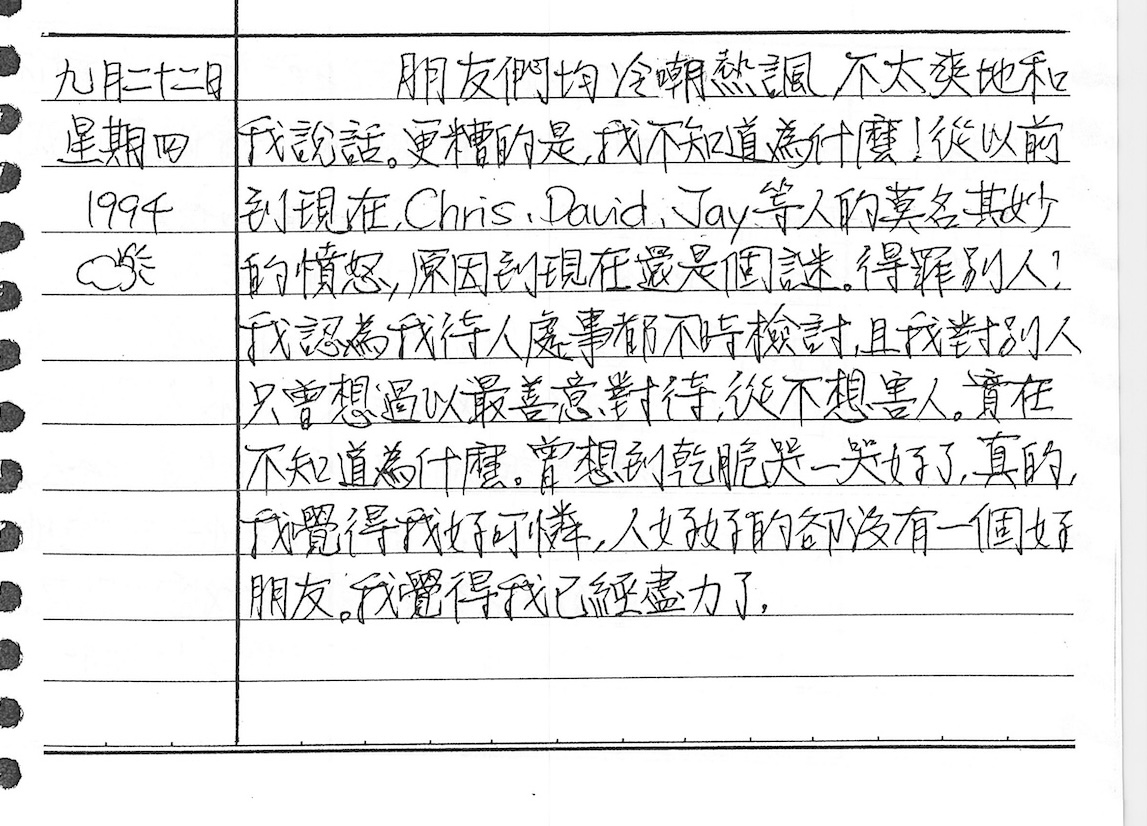 九月二十二日
星期四
1994
朋友們均冷嘲熱諷,不太爽地和
我說話。更糟的是,我不知道為什麼!從以前
到現在,Chris、David、Jay等人的莫名其妙
的憤怒,原因到現在還是個謎。得罪別人?
我認為我待人處事都不時檢討,且我對別人
只曾想過以最善意對待,從不想害人。實在
不知道為什麼。曾想到乾脆哭一哭好了,真的,
我覺得我好可憐,人好好的卻沒有一個好
朋友。我覺得我已經盡力了.